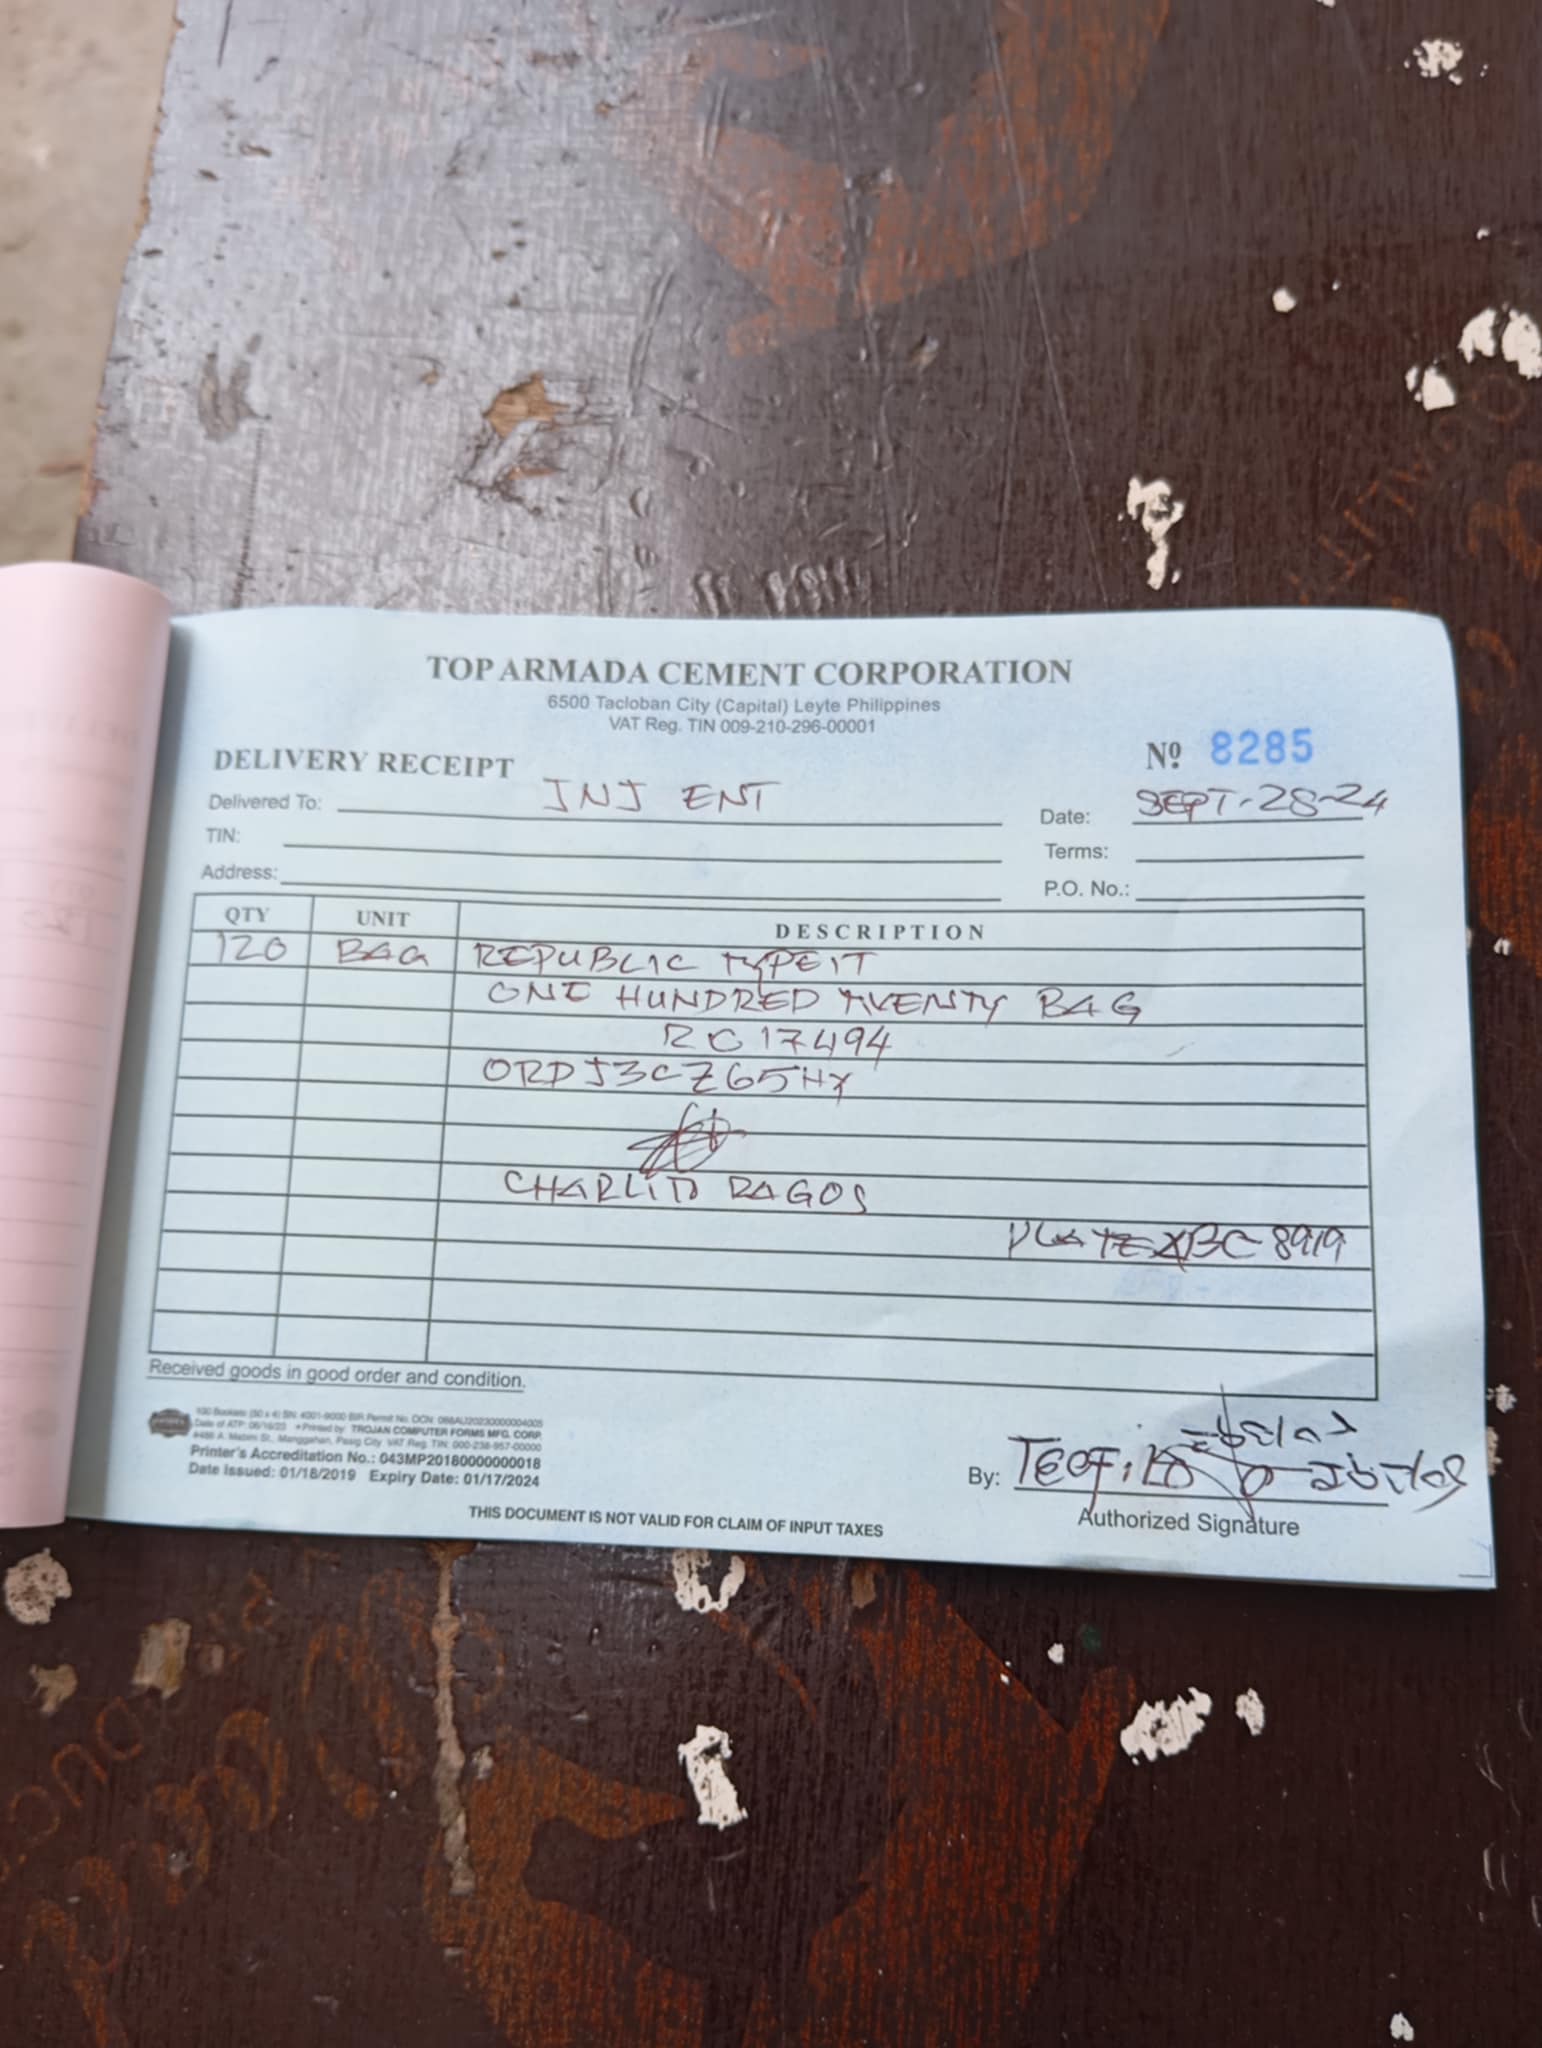 TOP ARMADA CEMENT CORPORATION
6500 Tacloban City (Capital) Leyte Philippines
VAT Reg. TIN 009-210-296-00001
DELIVERY RECEIPT
Nº 8285
Delivered To: JNJ ENT
Date: SEPT-28-24
TIN:
Terms:
Address:
P.O. No.:
QTY UNIT DESCRIPTION
120 BAG REPUBLIC TYPE 1T
ONE HUNDRED TWENTY BAG
RC17494
ORDJ3CZ65HY
CHARLITO RAGOS
PLATE XBC 8919
Received goods in good order and condition.
100 Booklets (50 x 4) SN: 4001-9000 BIR Permit No. OCN: 088AU20230000004005
Date of ATP: 06/16/23 • Printed by: TROJAN COMPUTER FORMS MFG. CORP.
A. Mabini St., Manggahan, Pasig City VAT Reg. TIN: 000-238-957-00000
Printer's Accreditation No.: 043MP20180000000018
Date Issued: 01/18/2019 Expiry Date: 01/17/2024
By:
Authorized Signature
THIS DOCUMENT IS NOT VALID FOR CLAIM OF INPUT TAXES